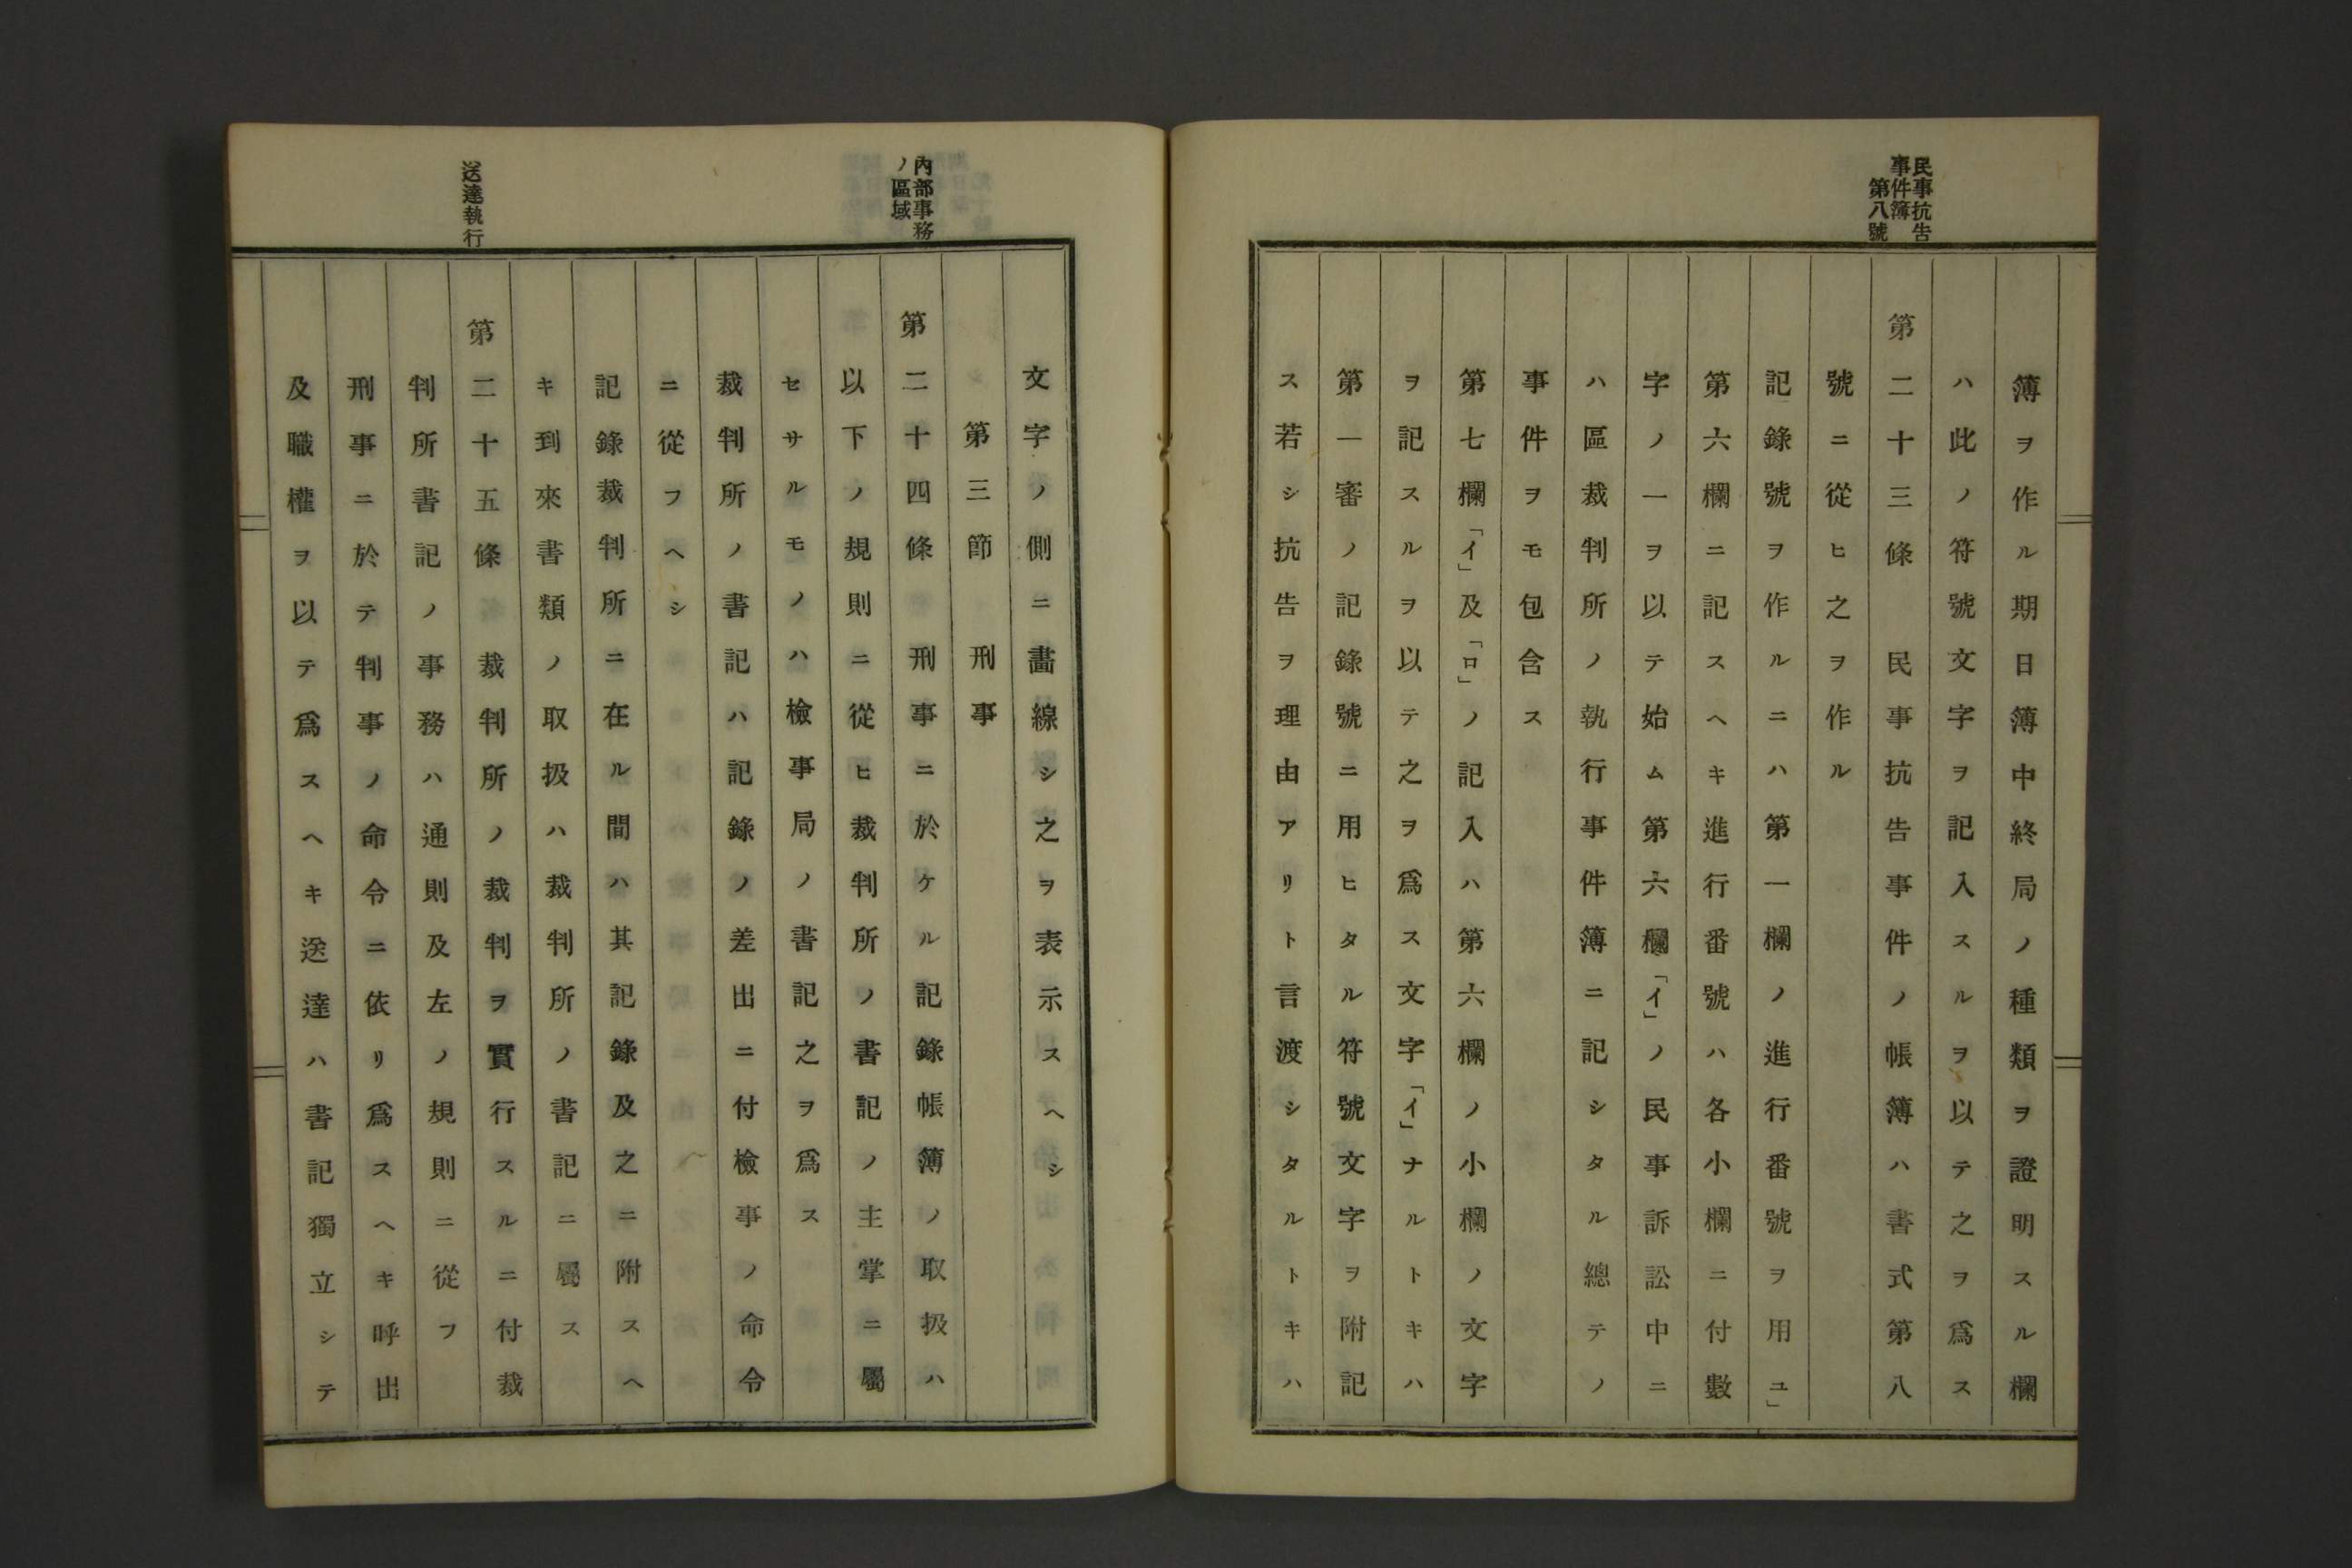 民事抗告
事件簿
第八號
簿ヲ作ル期日簿中終局ノ種類ヲ證明スル欄
ハ此ノ符號文字ヲ記入スルヲ以テ之ヲ爲ス
第二十三條 民事抗告事件ノ帳簿ハ書式第八
號ニ從ヒ之ヲ作ル
記錄號ヲ作ルニハ第一欄ノ進行番號ヲ用ユ」
第六欄ニ記スヘキ進行番號ハ各小欄ニ付數
字ノ一ヲ以テ始ム第六欄「イ」ノ民事訴訟中ニ
ハ區裁判所ノ執行事件簿ニ記シタル總テノ
事件ヲモ包含ス
第七欄「イ」及「ロ」ノ記入ハ第六欄ノ小欄ノ文字
ヲ記スルヲ以テ之ヲ爲ス文字「イ」ナルトキハ
第一審ノ記錄號ニ用ヒタル符號文字ヲ附記
ス若シ抗告ヲ理由アリト言渡シタルトキハ
文字ノ側ニ畫線シ之ヲ表示スヘシ
第三節 刑事
內部事務
ノ區域
第二十四條 刑事ニ於ケル記錄帳簿ノ取扱ハ
以下ノ規則ニ從ヒ裁判所ノ書記ノ主掌ニ屬
セサルモノハ檢事局ノ書記之ヲ爲ス
裁判所ノ書記ハ記錄ノ差出ニ付檢事ノ命令
ニ從フヘシ
記錄裁判所ニ在ル間ハ其記錄及之ニ附スヘ
キ到來書類ノ取扱ハ裁判所ノ書記ニ屬ス
送達執行
第二十五條 裁判所ノ裁判ヲ實行スルニ付裁
判所書記ノ事務ハ通則及左ノ規則ニ從フ
刑事ニ於テ判事ノ命令ニ依リ爲スヘキ呼出
及職權ヲ以テ爲スヘキ送達ハ書記獨立シテ